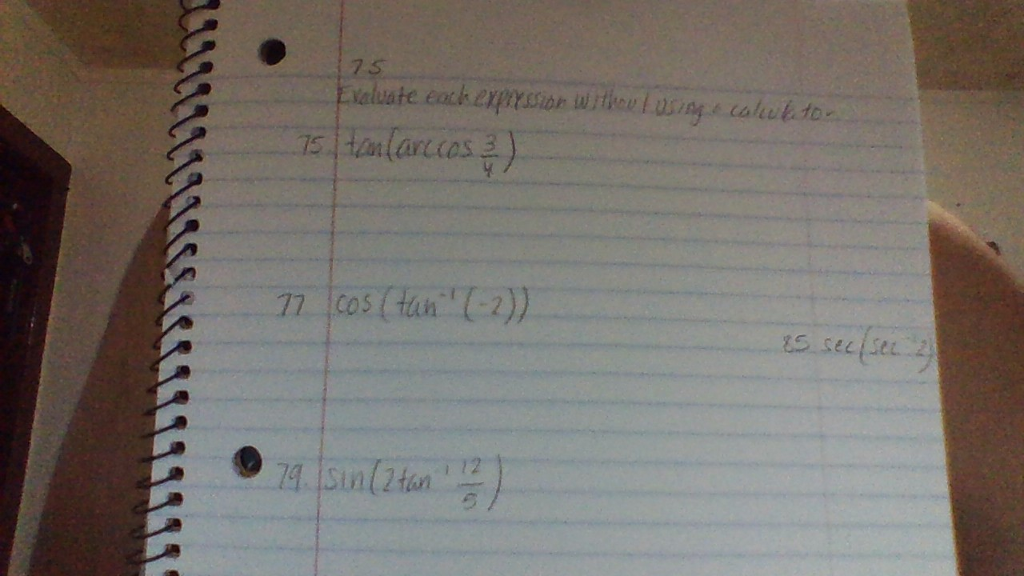 75
Evaluate each expression without using a calculator
75. tan(arccos 3/4)
77 cos(tan⁻¹(-2))
85 sec(sec⁻¹2)
79. sin(2tan⁻¹ 12/5)